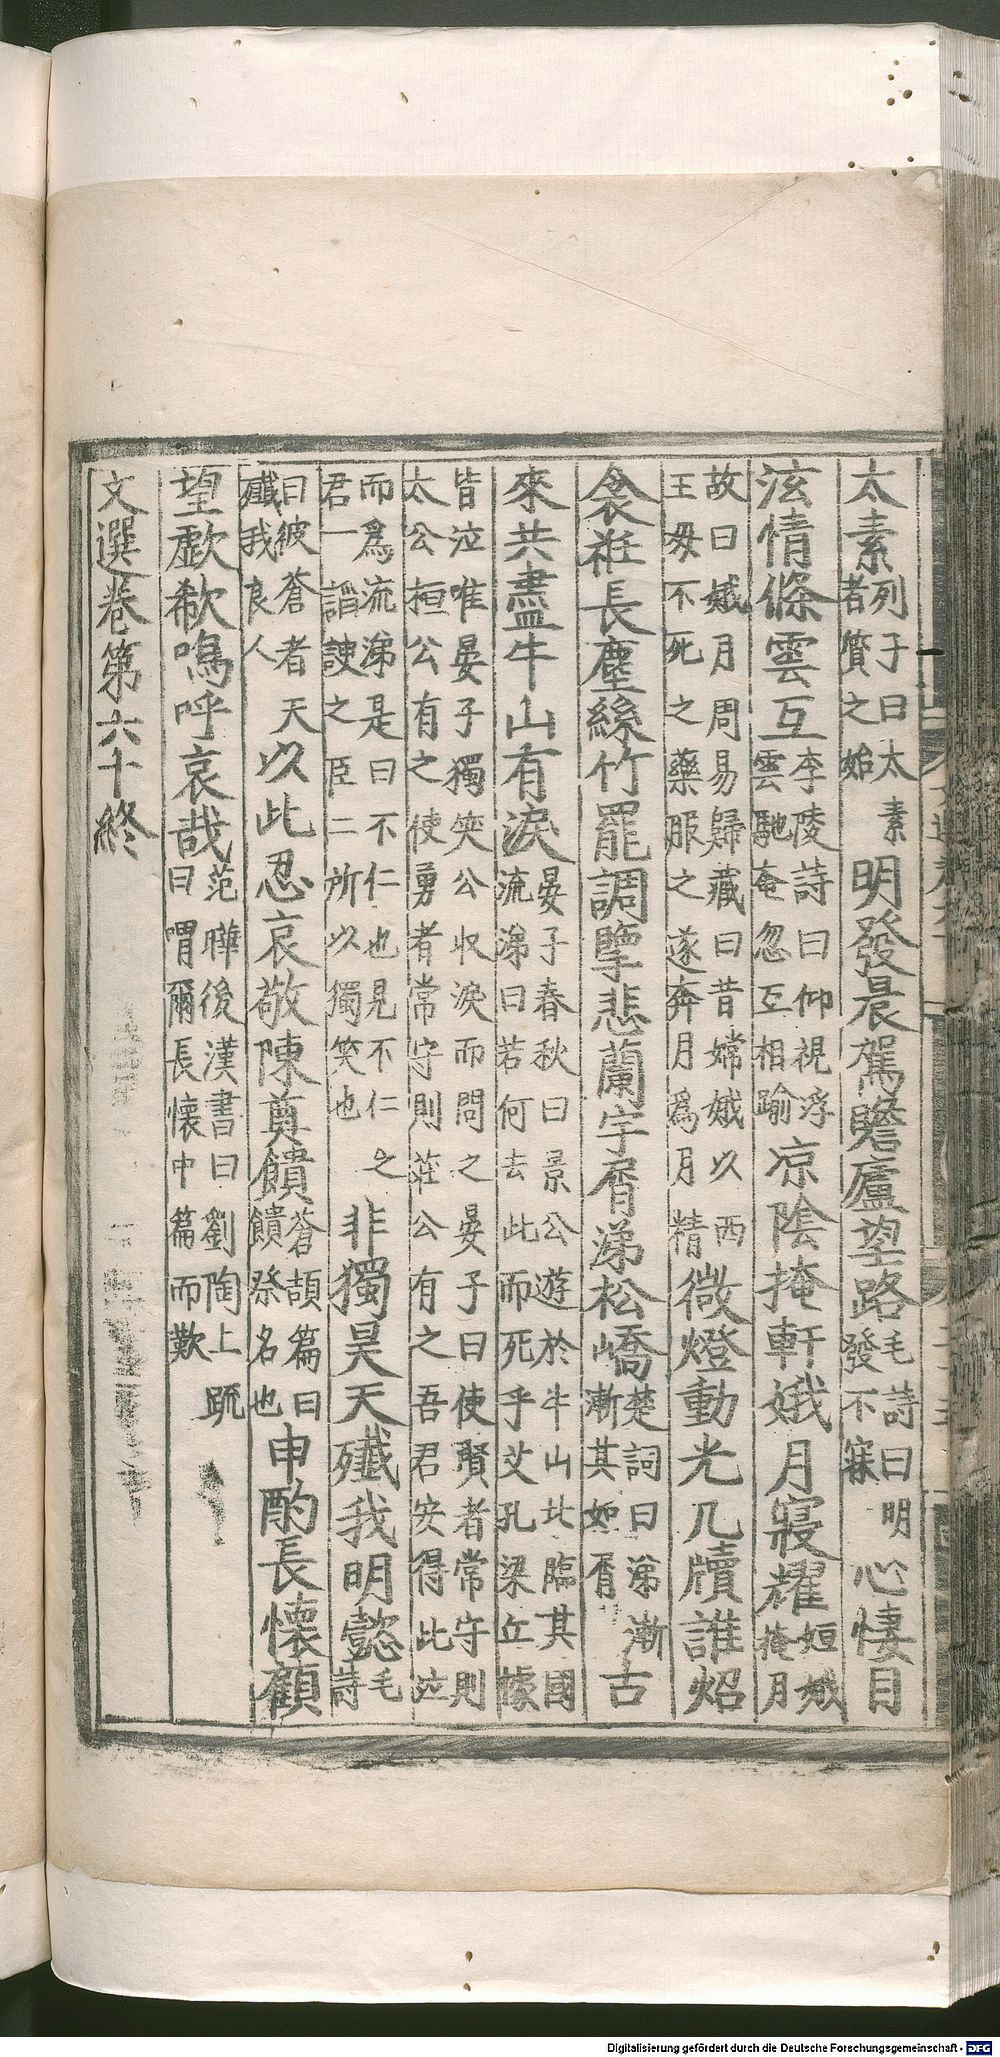 太素列子曰太素者質之始明發晨駕瞻廬望路毛詩曰明發不寐心悽目
泫情條雲互李陵詩曰仰視浮雲馳奄忽互相踰凉陰掩軒娥月寢耀姮娥掩月
故曰娥月周易歸藏曰昔嫦娥以西王母不死之藥服之遂奔月爲月精微燈動光几牘誰炤
衾袵長塵絲竹罷調擥悲蘭宇屑涕松嶠楚詞曰涕漸漸其如屑古
來共盡牛山有淚晏子春秋曰景公遊於牛山北臨其國流涕曰若何去此而死乎艾孔梁丘據
皆泣唯晏子獨笑公收淚而問之晏子曰使賢者常守則太公桓公有之使勇者常守則莊公有之吾君安得此泣
而爲流涕是曰不仁也見不仁之君一諂諛之臣二所以獨笑也非獨昊天殲我明懿毛詩
曰彼蒼者天殲我良人以此忍哀敬陳奠饋蒼頡篇曰饋祭名也申酌長懷顧
望歔欷嗚呼哀哉范曄後漢書曰劉陶上疏曰喟爾長懷中篇而歎
文選卷第六十終
Digitalisierung gefördert durch die Deutsche Forschungsgemeinschaft - DFG